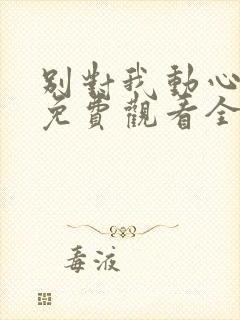 別對我動心
免費觀看全
毒液